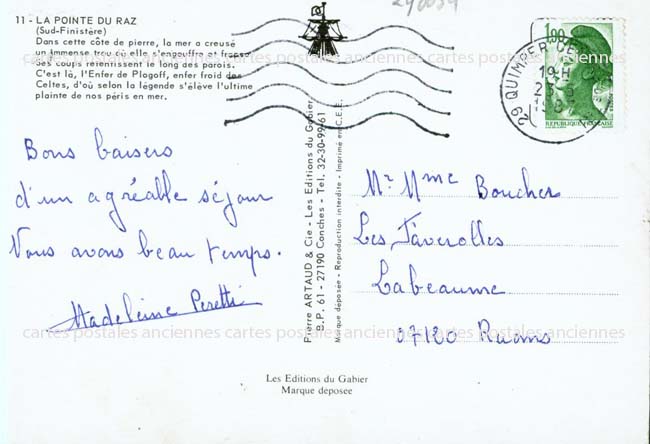 11 - LA POINTE DU RAZ
(Sud-Finistère)
Dans cette côte de pierre, la mer a creusé
un immense trou où elle s'engouffre et
ses coups retentissent le long des parois.
C'est là, l'Enfer de Plogoff, enfer froid des
Celtes, d'où selon la légende s'élève l'ultime
plainte de nos péris en mer.
Bons baisers
d'un agréable séjour
Vous avons beau temps.
Madeleine Peretti
Pierre ARTAUD & Cie - Les Editions du Gabier
B.P. 61 - 27190 Conches - Tel. 32-30-99-61
Marque déposée - Reproduction interdite - Imprimé en C.E.E.
29 QUIMPER
19H
1,90
REPUBLIQUE FRANÇAISE
Mr Mme Boucher
Les Faverolles
Labeaume
07120 Ruoms
cartes postales anciennes cartes postales anciennes cartes postales anciennes
cartes postales anciennes cartes postales anciennes cartes postales anciennes
Les Editions du Gabier
Marque deposee